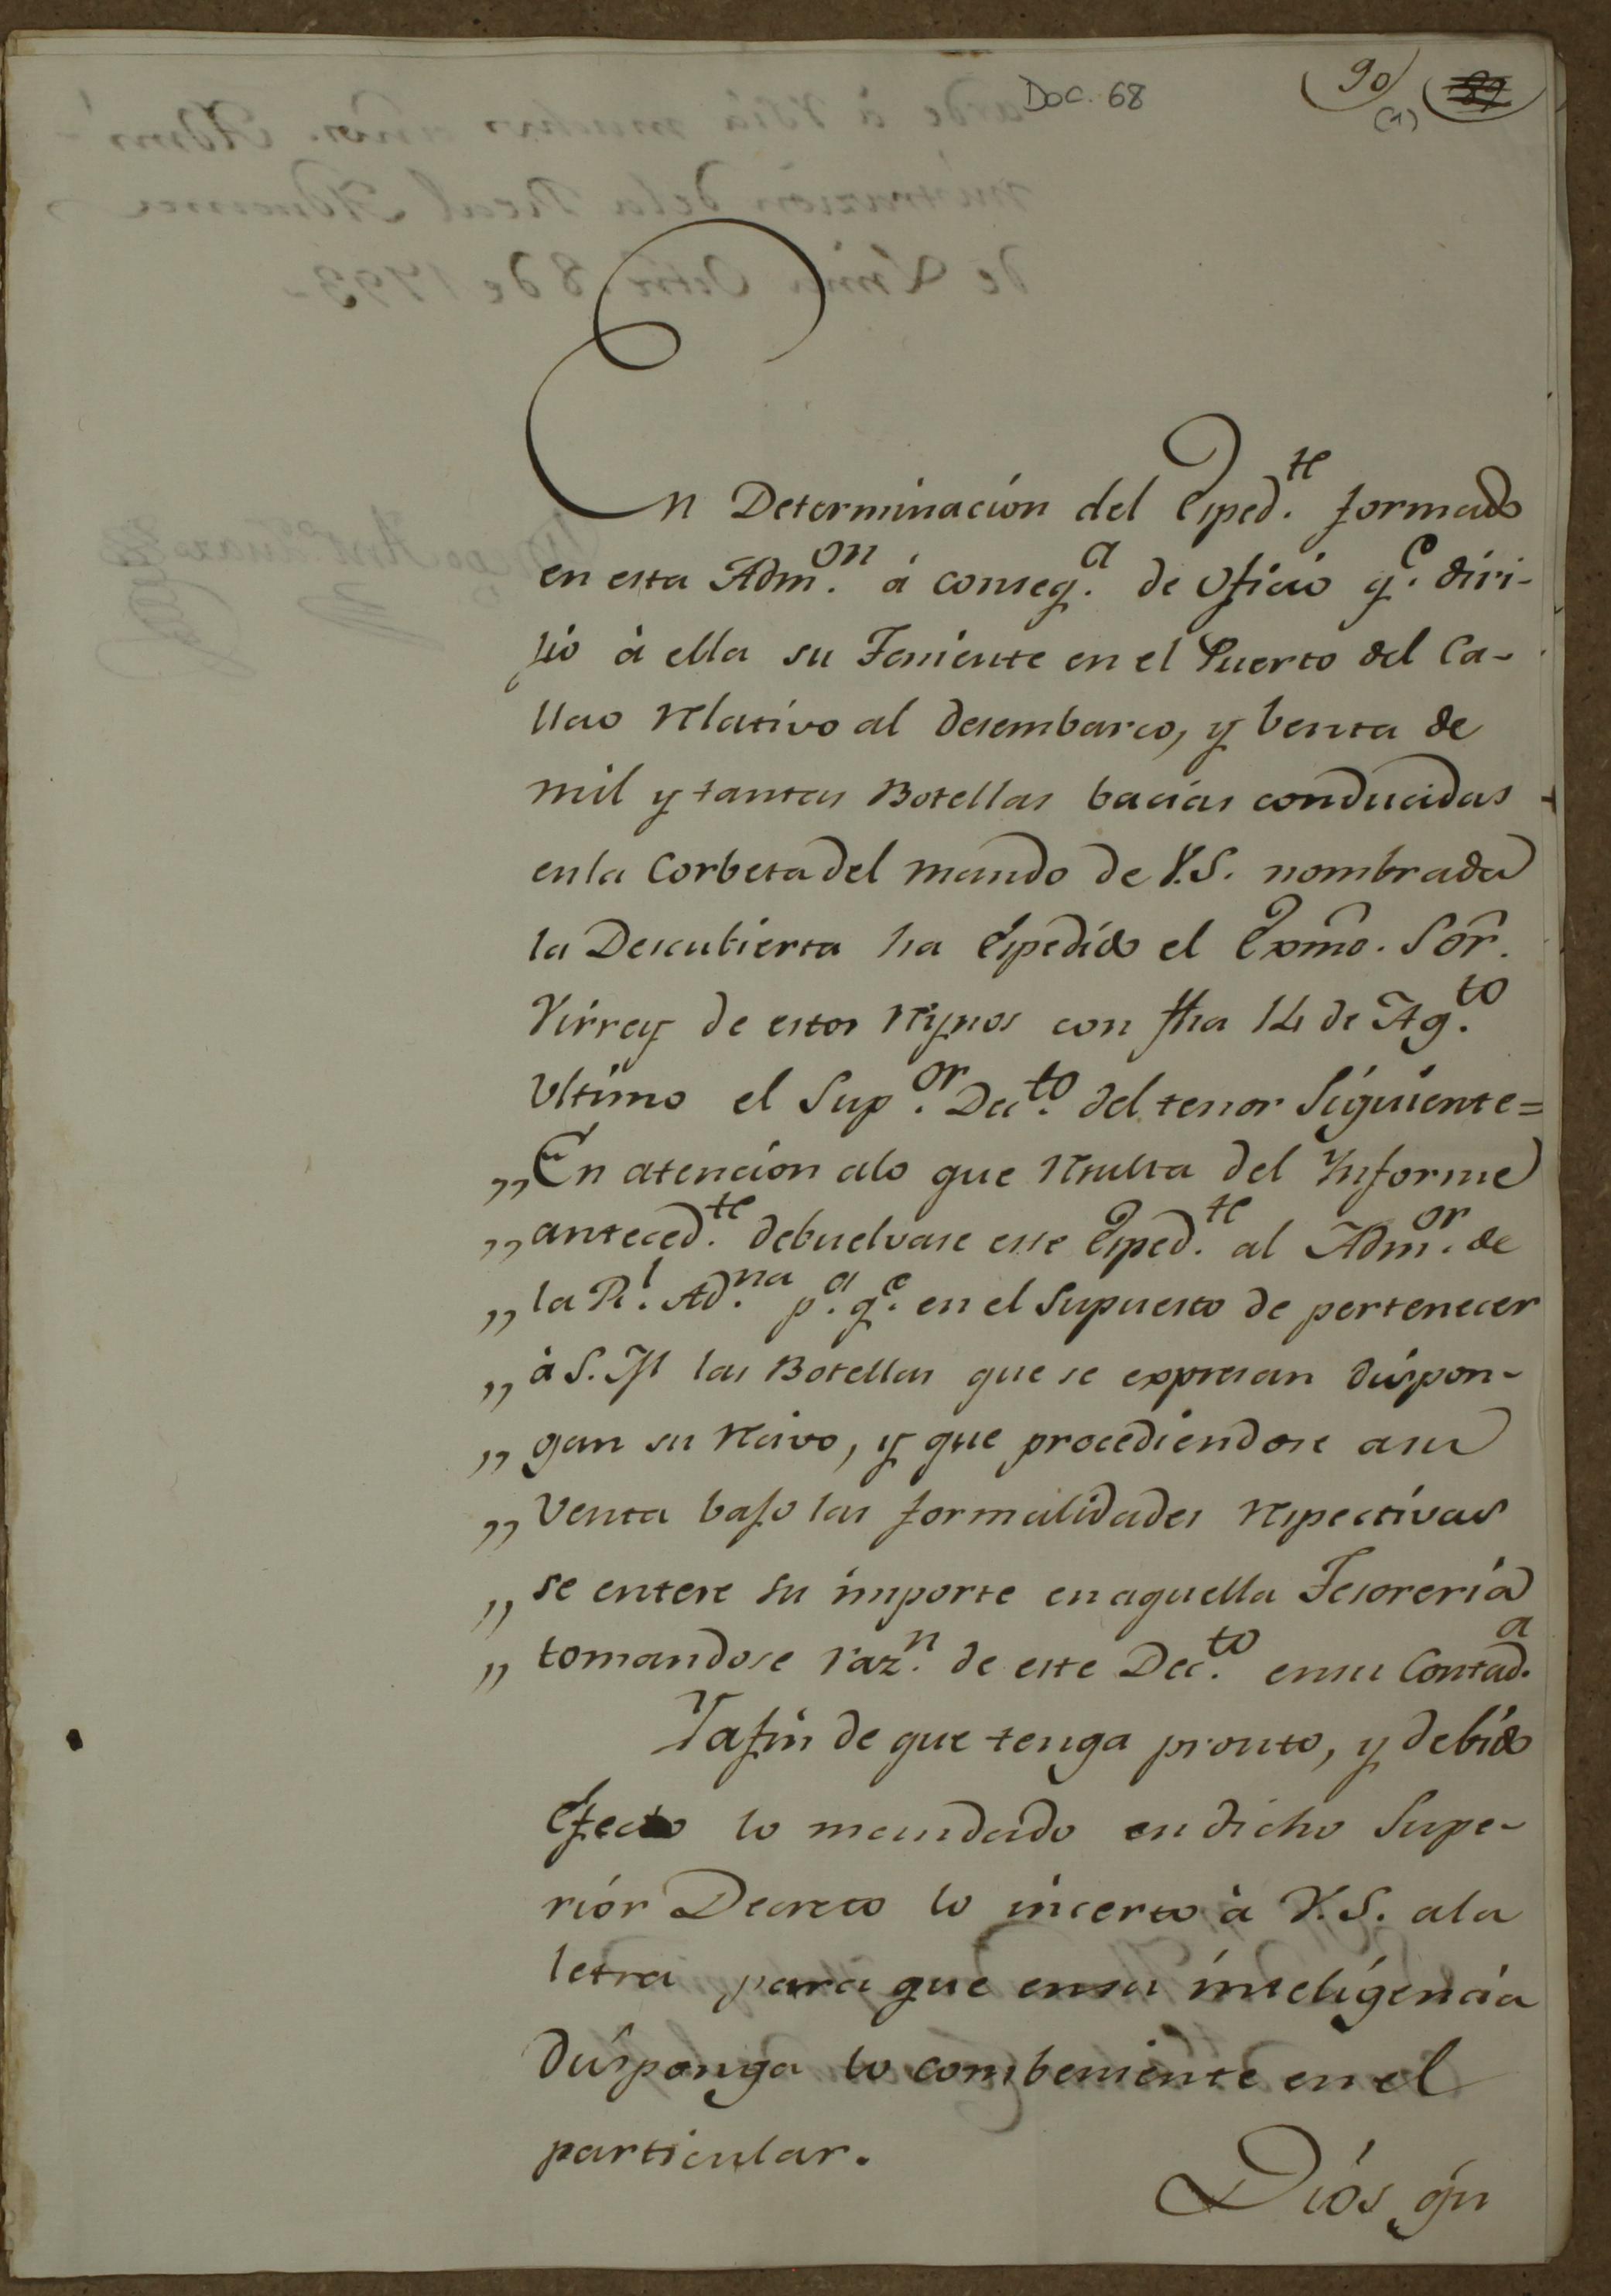 Doc. 68
90
(1)
En Determinación del Exped.te formado
en esta Adm.on á conseq.a de Oficio q.e diri-
jió à ella su Teniente en el Puerto del Ca-
llao relativo al desembarco, y benta de
mil y tantas Botellas bacias conducidas
en la Corbeta del mando de V.S. nombrada
la Descubierta ha Expedido el Exmo. Sor.
Virrey de estos Reynos con fha 14 de Ag.to
Ultimo el Sup.or Dec.to del tenor Siguiente=
„ En atencion alo que resulta del Ynforme
„ anteced.te debuelvase este Exped.te al Adm.or de
„ la R.l Ad.na p.a q.e en el Supuesto de pertenecer
„ à S.M las Botellas que se expresan dispon-
„ gan su recivo, y que procediendose asu
„ Venta bajo las formalidades respectivas
„ se entere su importe en aquella Tesoreria
„ tomandose raz.n de este Dec.to ensu Contad.a
Yafin de que tenga pronto, y debido
Efecto lo mandado en dicho Supe-
riór Decreto lo incerto à V.S. ala
letra para que ensu inteligencia
disponga lo combeniente en el
particular.
Diós gu